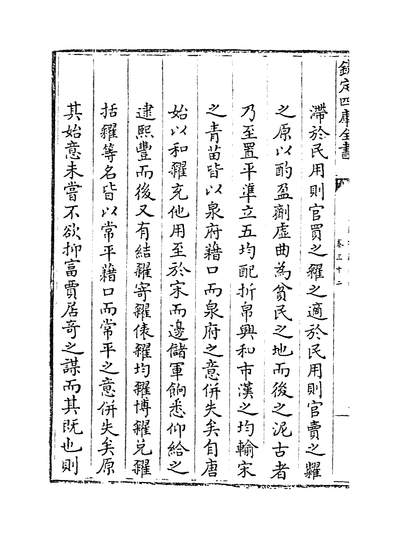 欽定四庫全書
卷三十二
滯於民用則官買之糴之適於民用則官賣之糶
之原以酌盈劑虛曲為貧民之地而後之泥古者
乃至置平準立五均配折帛興和市漢之均輸宋
之青苗皆以泉府藉口而泉府之意併失矣自唐
始以和糴充他用至於宋而邊儲軍餉悉仰給之
逮熙豐而後又有結糴寄糴俵糴均糴博糴兌糴
括糴等名皆以常平藉口而常平之意併失矣原
其始意未嘗不欲抑富賈居奇之謀而其既也則